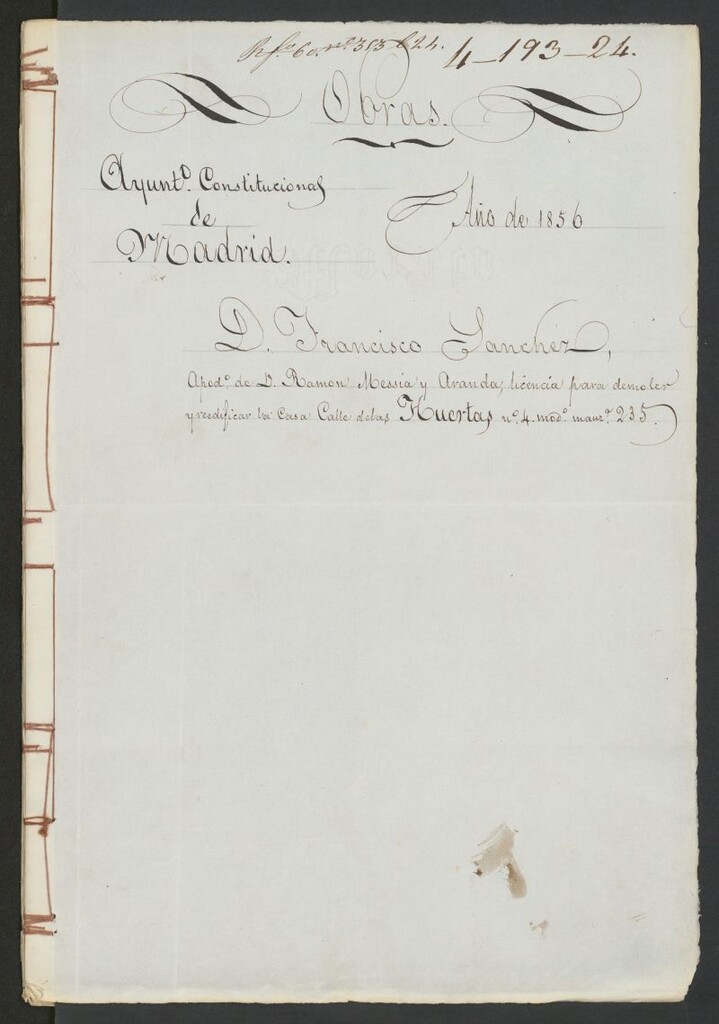 4-193-24.
Obras.
Ayuntº. Constitucional
de
Madrid.
Año de 1856
D. Francisco Sanchez,
Apodº. de D. Ramon Messia y Aranda, licencia para demoler
y reedificar la Casa Calle de las Huertas nº. 4. modº. manzª. 235.